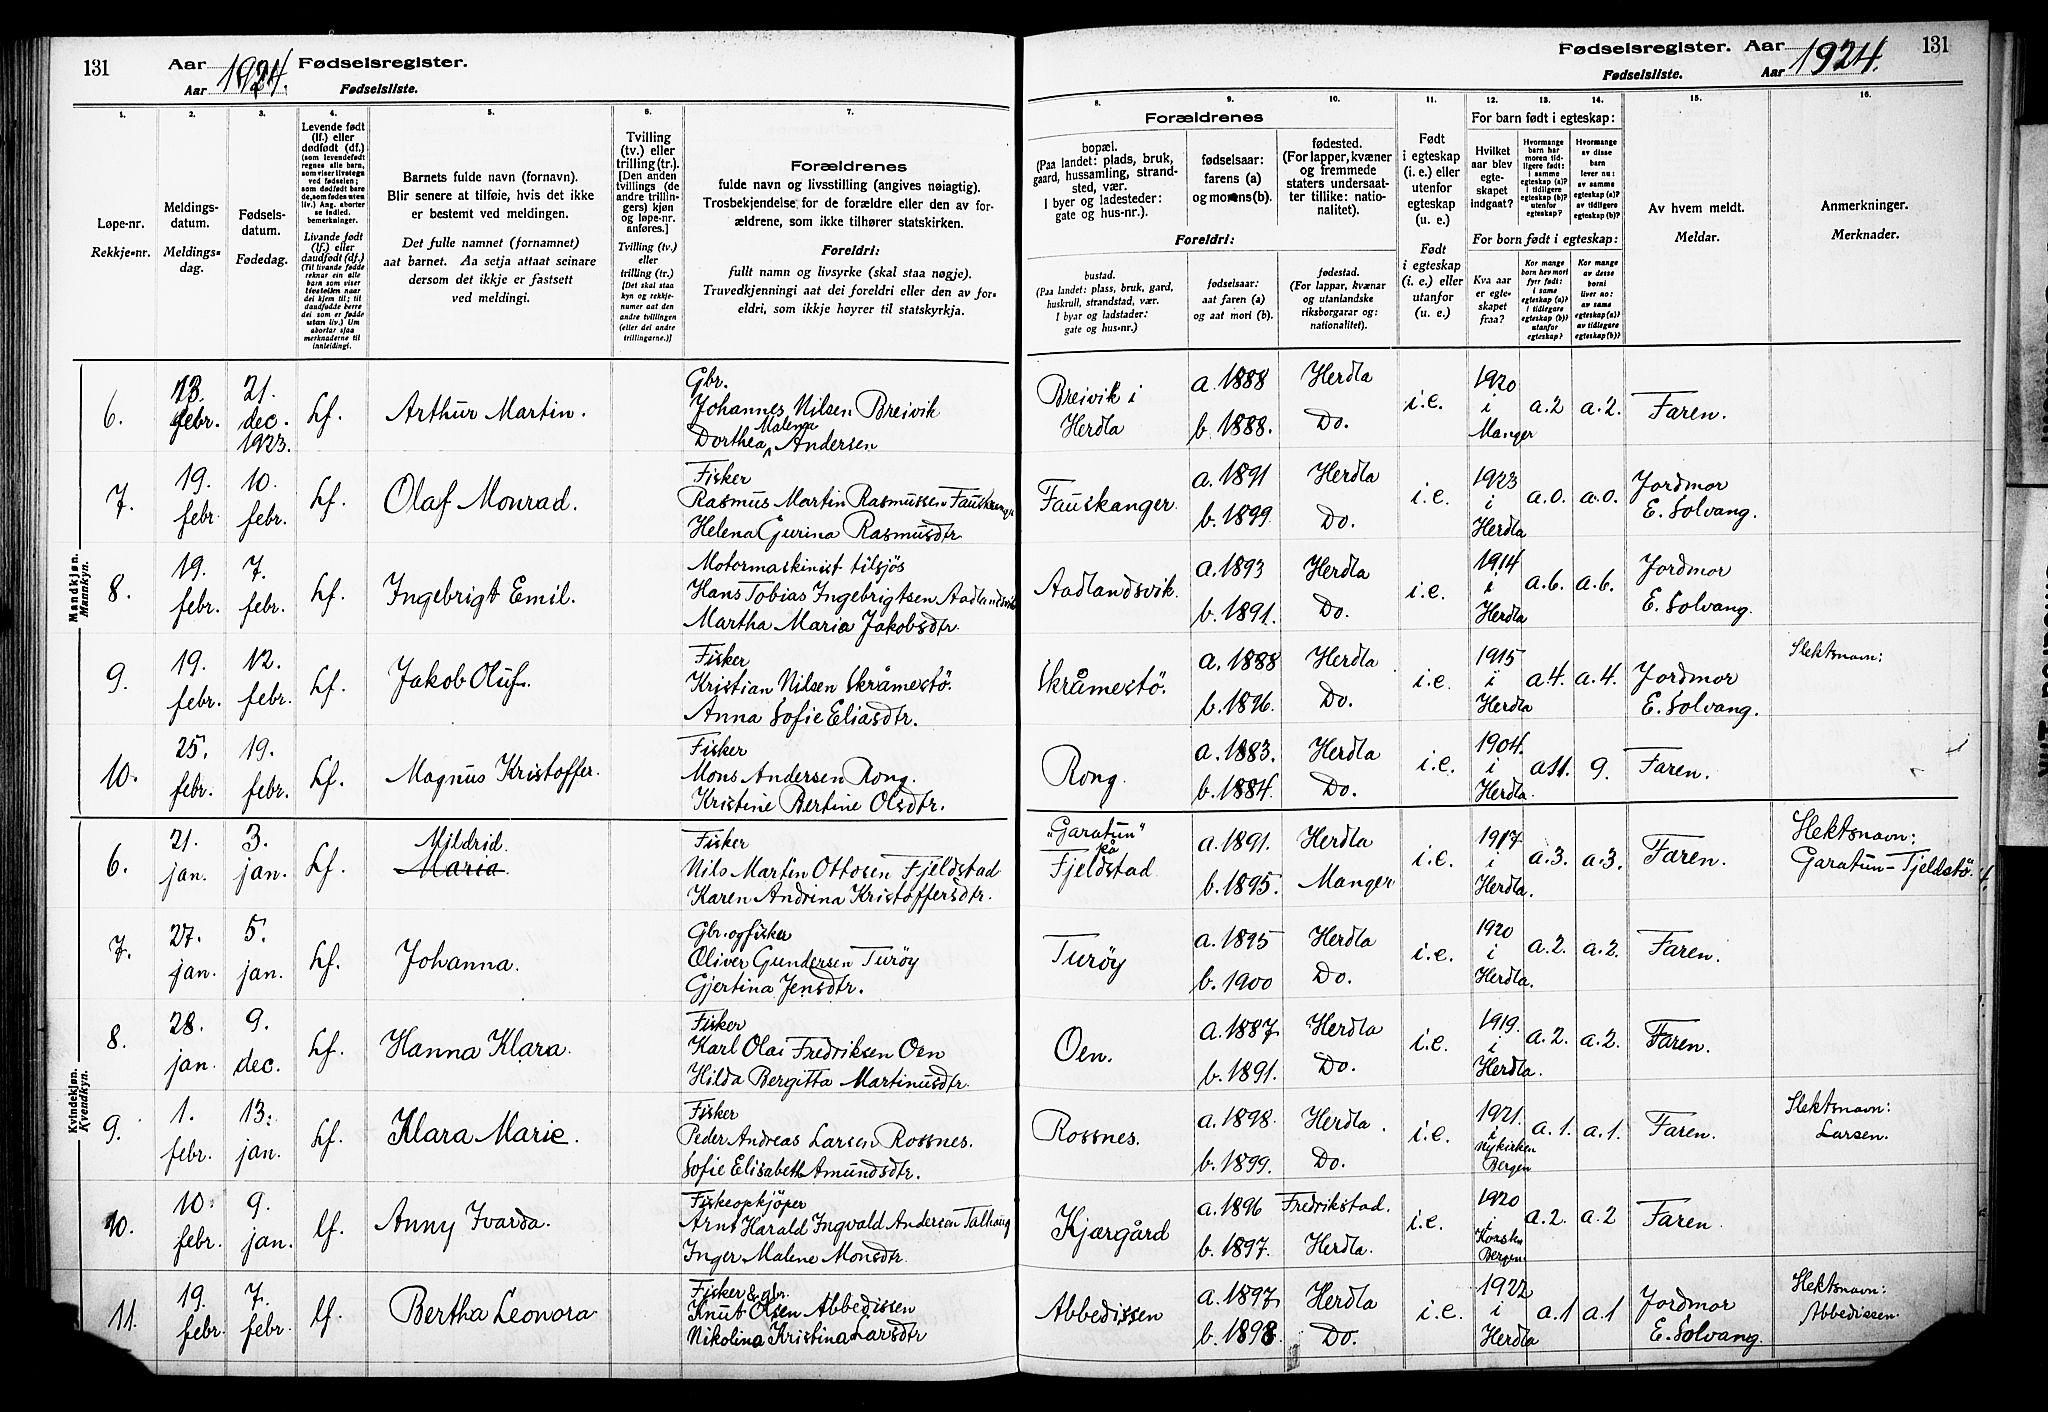 131 Aar 1924. Fødselsregister.
Aar Fødselsliste.
Fødselsregister. Aar 1924. 131
Fødselsliste. Aar
1. 2. 3. 4. 5. 6. 7.
Løpe-nr.
Rekkje-nr.
Meldings-
datum.
Meldings-
dag.
Fødsels-
datum.
Fødedag.
Levende født
(lf.) eller
dødfødt (df.)
(som levendefødt
regnes alle barn,
som viser livstegn
ved fødselen;
som dødfødt bare
de, som fødes uten
liv.) Ang. aborter
se indled.
bemerkninger.
Livande født
(lf.) eller
daudfødt (df.)
(Til livande fødde
reknar ein alle
barn som viser
livsteikn naar
dei kjem til; til
daudfødde berre
dei som er fødde
utan liv.) Um
abortar sjaa
merknaderne til
innleidingi.
Barnets fulde navn (fornavn).
Blir senere at tilføie, hvis det ikke
er bestemt ved meldingen.
Det fulle namnet (fornamnet)
aat barnet. Aa setja attaat seinare
dersom det ikkje er fastsett
ved meldingi.
Tvilling
(tv.) eller
trilling (tr.).
[Den anden
tvillings (de
andre trillin-
gers) kjøn
og løpe-nr.
anføres.]
Tvilling (tv.)
eller
trilling (tr.)
[Det skal staa
kyn og rekkje-
numer aat den
andre tvillingen
(eller dei andre
trillingarne.)]
Forældrenes
fulde navn og livsstilling (angives nøiagtig).
Trosbekjendelse for de forældre eller den av for-
ældrene, som ikke tilhører statskirken.
Foreldri:
fullt namn og livsyrke (skal staa nøgje).
Truvedkjenningi aat dei foreldri eller den av for-
eldri, som ikkje høyrer til statskyrkja.
8. 9. 10. 11. 12. 13. 14. 15. 16.
Forældrenes
bopæl.
(Paa landet: plads, bruk,
gaard, hussamling, strand-
sted, vær.
I byer og ladesteder:
gate og hus-nr.).
fødselsaar:
farens (a)
og morens (b).
fødested.
(For lapper, kvæner
og fremmede
staters undersaat-
ter tillike: natio-
nalitet).
Foreldri:
bustad.
(Paa landet: plass, bruk, gard,
huskrull, strandstad, vær.
I byar og ladstader:
gate og hus-nr.)
fødselsaar:
aat faren (a)
og aat mori (b).
fødestad.
(For lappar, kvænar
og utanlandske
riksborgarar og:
nationalitet).
Født
i egteskap
(i. e.) eller
utenfor
egteskap
(u. e.)
Født
i egteskap
(i. e.) eller
utanfor
(u. e.)
For barn født i egteskap:
Hvilket
aar blev
egte-
skapet
indgaat?
Hvormange
barn har
moren tid-
ligere født:
i samme
egteskap (a)?
i tidligere
egteskap (b)?
utenfor
egteskap?
Hvormange
av disse
barn
lever nu:
av samme
egteskap (a)?
av tidligere
egteskap (b)?
For born født i egteskap:
Kva aar
er egte-
skapet
fraa?
Kor mange
born hev mori
fyrr født:
i same
egteskap (a)?
i tidlegare
egteskap (b)?
utanfor
egteskap?
Kor mange
av desse
borni
liver no:
av same
egteskap (a)?
av tidlegare
egteskap (b)?
Av hvem meldt.
Meldar.
Anmerkninger.
Merknader.
Mandkjøn.
Mannkyn.
6. 13. febr. 21. dec. 1923. Lf. Arthur Martin.
Gbr.
Johannes Nilsen Breivik
Malena
Dorthea Andersen
Breivik i Herdla a. 1888 b. 1888. Herdla Do. i.e. 1920 i Manger a. 2 a. 2. Faren.
7. 19. febr. 10. febr. Lf. Olaf Monrad.
Fisker
Rasmus Martin Rasmussen Fauskanger
Helena Gurina Rasmusdtr.
Fauskanger. a. 1891 b. 1899. Herdla Do. i.e. 1923 i Herdla a.0. a.0. Jordmor E. Solvang.
8. 19. febr. 7. febr. Lf. Ingebrigt Emil.
Motormaskinist tilsjøs
Hans Tobias Ingebrigtsen Aadlandsvik
Martha Maria Jakobsdtr.
Aadlandsvik. a. 1893 b. 1891. Herdla Do. i.e. 1914 i Herdla a.6. a.6. Jordmor E. Solvang.
9. 19. febr. 12. febr. Lf. Jakob Oluf.
Fisker
Kristian Nilsen Skråmestö.
Anna Sofie Eliasdtr.
Skråmestö. a. 1888 b. 1896. Herdla Do. i.e. 1915 i Herdla a 4. a. 4. Jordmor E. Solvang. Slektsnavn:
10. 25. febr. 19. febr. Lf. Magnus Kristoffer.
Fisker
Mons Andersen Rong.
Kristine Bertine Olsdtr.
Rong. a. 1883. b. 1884. Herdla Do. i.e. 1904. i Herdla. a 11. 9. Faren.
Kvindekjøn.
Kvendkyn.
6. 21. jan. 3. jan. Lf. Mildrid. Maria.
Fisker
Nils Martin Ottosen Fjeldstad
Karen Andrina Kristoffersdtr.
"Garatun" på Fjeldstad a. 1891. b. 1895. Herdla Manger i.e. 1917 i Herdla. a. 3. a. 3. Faren. Slektsnavn: Garatun-Tjeldstö.
7. 27. jan. 5. jan. Lf. Johanna.
Gbr. og fisker
Oliver Gundersen Turøy
Gjertina Jensdtr.
Turøy a. 1895 b. 1900 Herdla Do. i.e. 1920 i Herdla. a. 2. a. 2. Faren.
8. 28. jan. 9. dec. Lf. Hanna Klara.
Fisker
Karl Olai Fredriksen Oen
Hilda Bergitta Martinusdtr.
Oen. a. 1887. b. 1891. Herdla Do. i.e. 1919. i Herdla. a. 2. a. 2. Faren.
9. 1. febr. 13. jan. Lf. Klara Marie.
Fisker
Peder Andreas Larsen Rossnes.
Sofie Elisabeth Amundsdtr.
Rossnes. a. 1898. b. 1899. Herdla. Do. i.e. 1921. i Nykirken Bergen a. 1. a. 1. Faren. Slektsnavn: Larsen.
10. 10. febr. 9. jan. lf. Anny Ivarda.
Fiskeopkjöper
Arnt Harald Ingvald Andersen Talhaug
Inger Malene Monsdtr.
Kjærgård a. 1896 b. 1897. Fredrikstad. Herdla. i.e. 1920 i Bergen a. 2. a. 2 Faren.
11. 19. febr. 7. febr. lf. Bertha Leonora
Fisker & gbr.
Knut Olsen Abbedissen
Nikolina Kristina Larsdtr
Abbedissen a. 1897. b. 1898. Herdla Do. i.e. 1922 i Herdla a. 1 a. 1 Jordmor E. Solvang. Slektsnavn: Abbedissen.